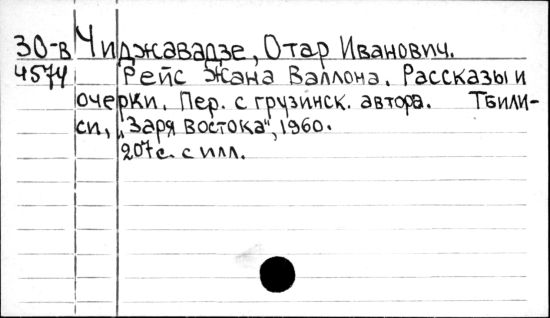 30-в Чиджавадзе, Отар Иванович.
4574 Рейс Жана Валлона. Рассказы и
очерки. Пер. с грузинск. автора. Тбили-
си, „Заря востока", 1960.
207 с. с илл.